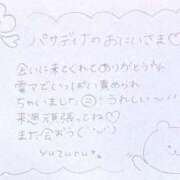 パサディナのおにいさま♡
会いに来てくれてありがとう
電マでいっぱい責められ
ちゃいました うれしい〜!!
来週頑張ってね♡
また会おうね(˙˘˙)
yuzuru*。